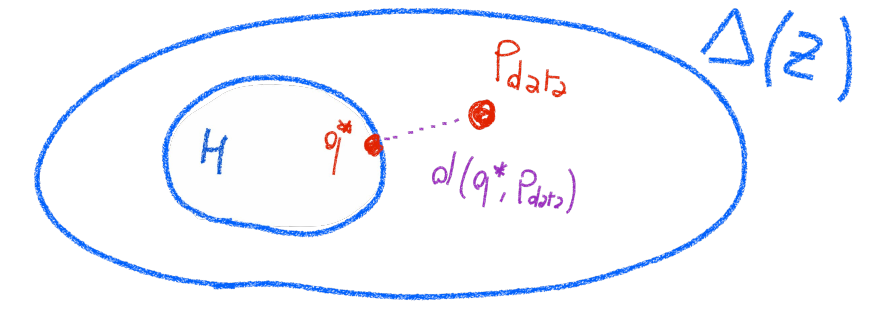 Δ(Z)
Pdata
H
q*
d(q*, Pdata)